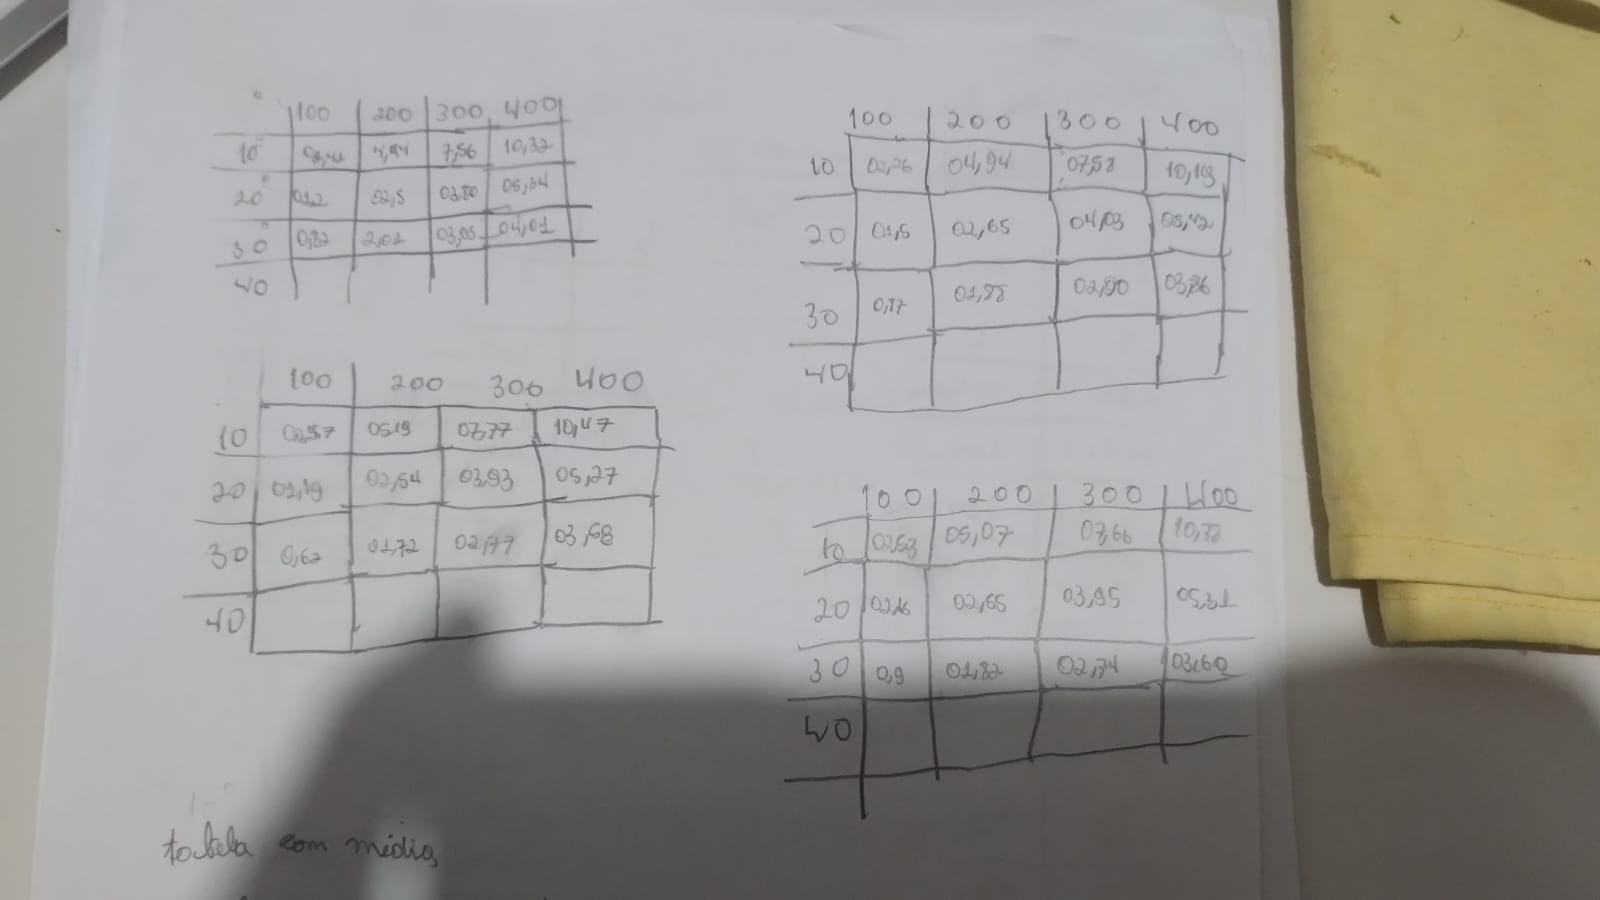 100 200 300 400
10° 4,94 7,56 10,32
20° 01,2 02,5 03,80 05,34
30° 0,82 2,01 03,05 04,01
40
100 200 300 400
10 04,94 07,58 10,19
20 01,5 02,65 04,03 05,42
30 0,87 01,88 02,90 03,86
40
100 200 300 400
10 02,57 05,19 07,77 10,47
20 01,19 02,54 03,93 05,27
30 0,62 01,72 02,77 03,68
40
100 200 300 400
10 02,53 05,07 07,66 10,38
20 02,65 03,95 05,31
30 0,9 01,82 02,74 03,60
40
tabela com média